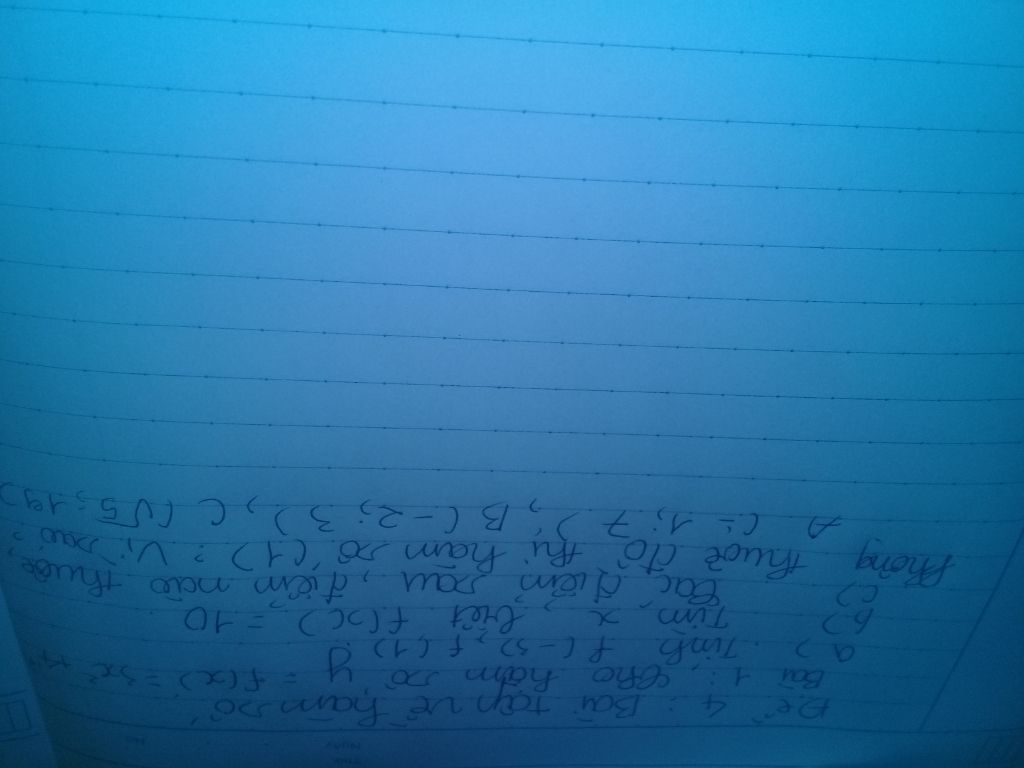 Đề 4 : Bài tập về hàm số
Bài 1 : Cho hàm số y = f(x) = 3x² +
a) Tính f(-3), f(1)
b) Tìm x, biết f(x) = 10
c) Các điểm sau, điểm nào thuộc,
không thuộc đồ thị hàm số (1) ? Vì sao ?
A (-1 ; 7), B (-2 ; 3), C (√5 ; 19)